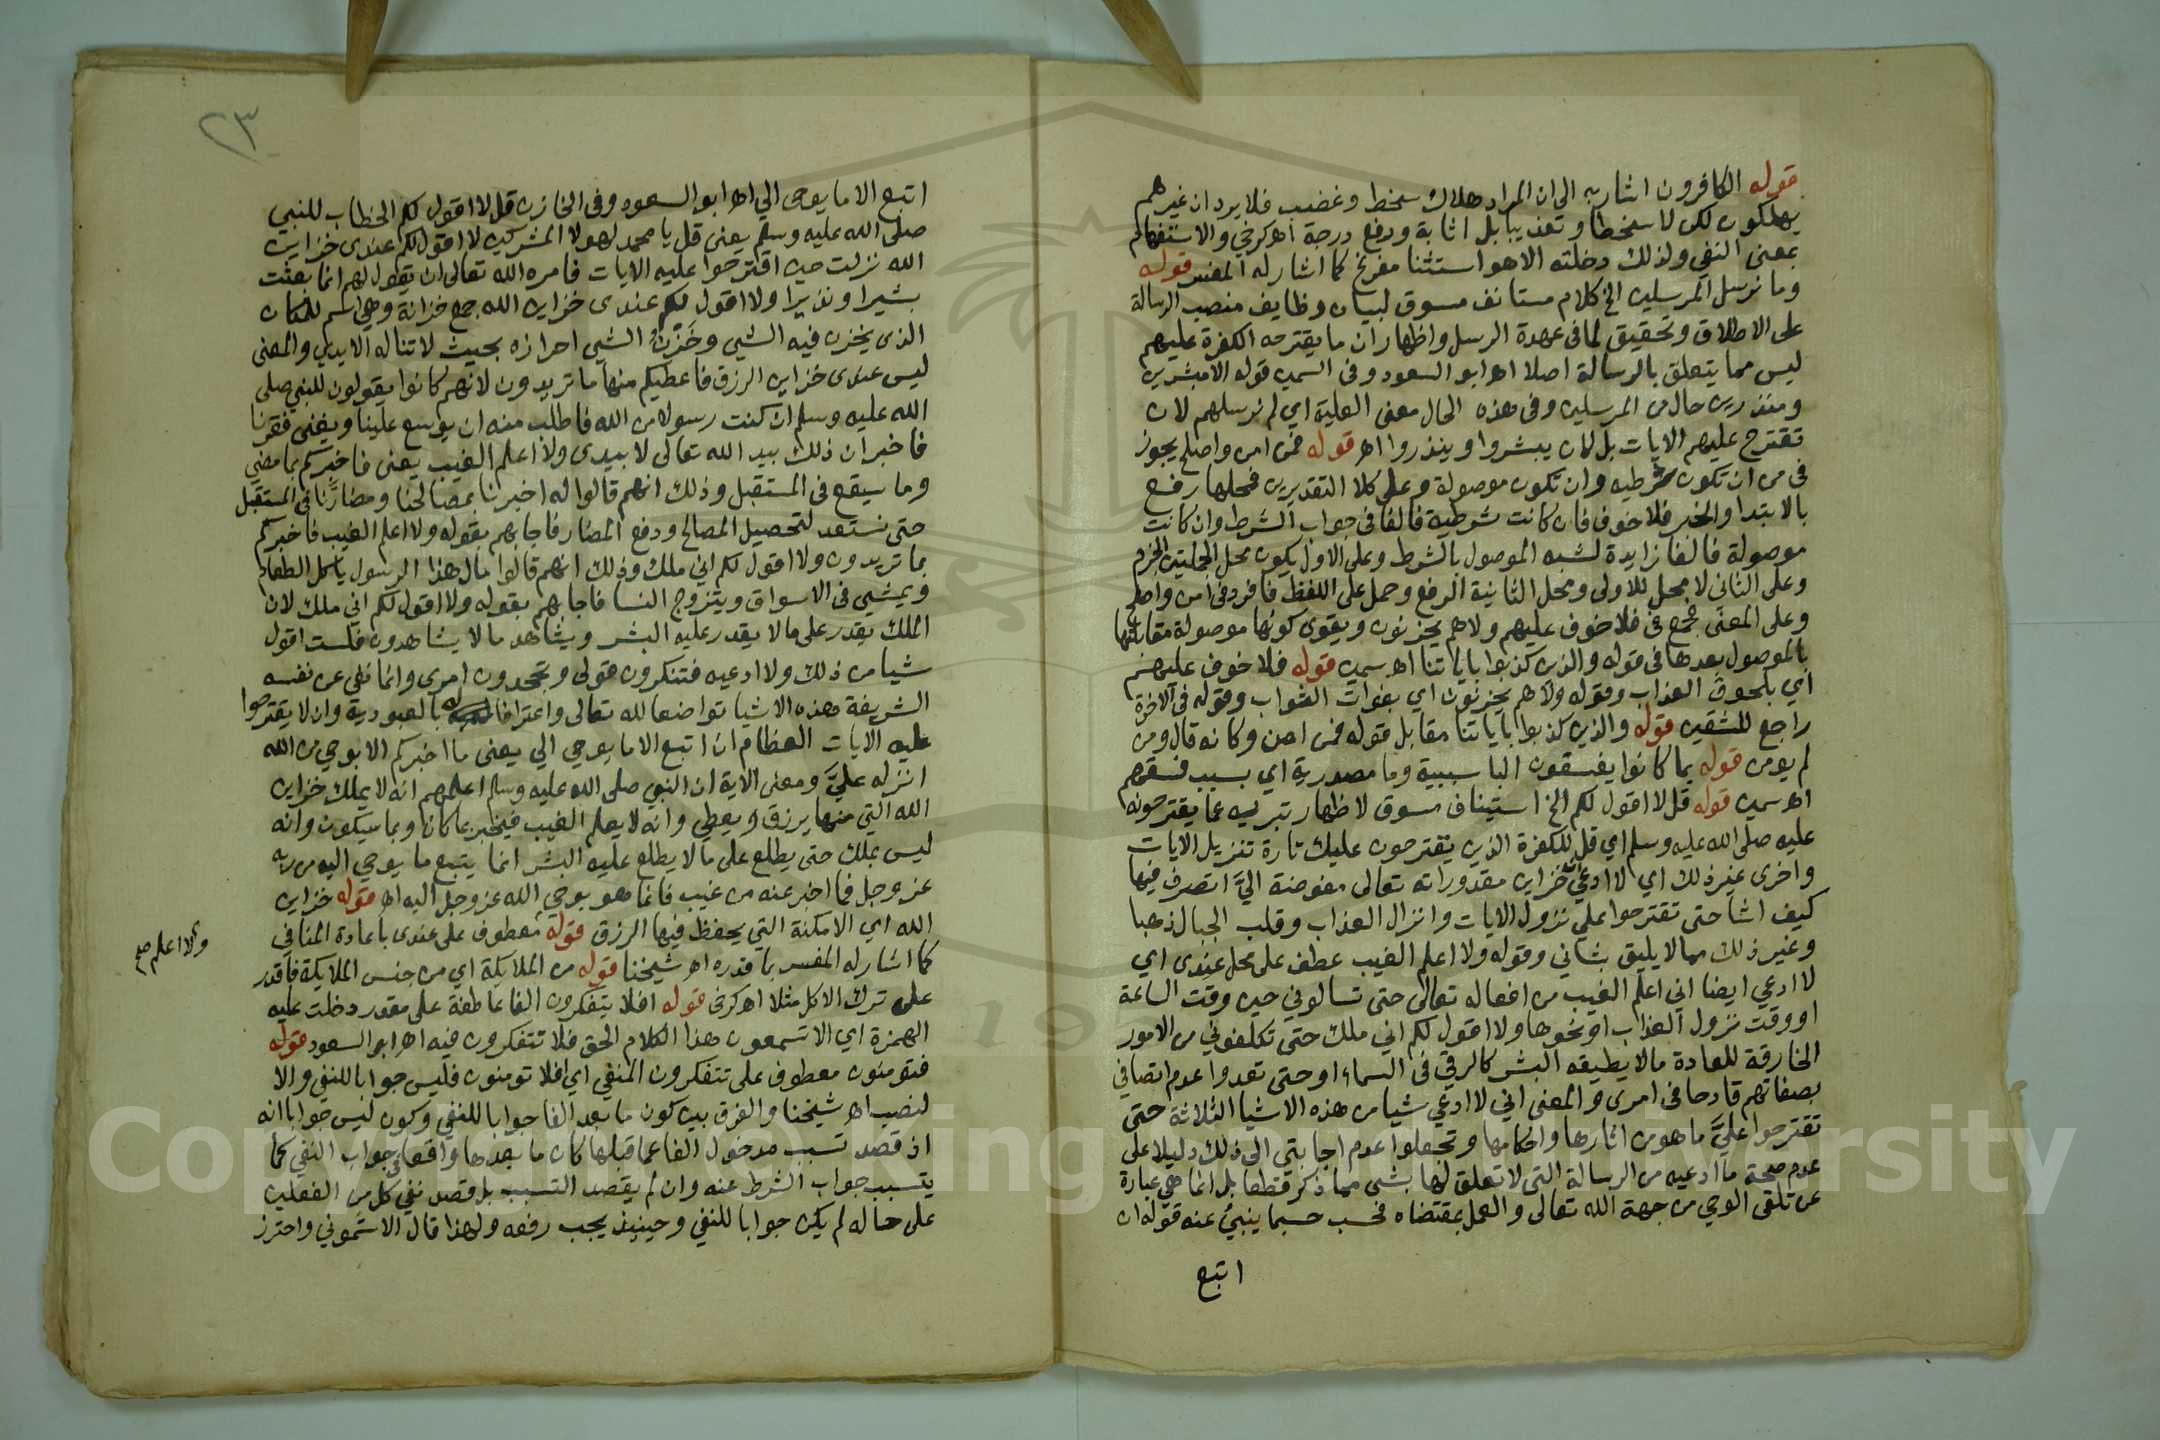 قوله الكافرون اشار به الى ان المراد هلاك سخط وغضب فلا يرد ان غيرهم
يهلكون لكن لا سخطا وتعذيبا بل اثابة ورفع درجة اهـ كرخي والاستفهام
بمعنى النفي ولذلك دخلته الا هو استثنا مفرغ كما اشار له المفسر قوله
وما نرسل المرسلين الخ كلام مستانف مسوق لبيان وظايف منصب الرسالة
على الاطلاق وتحقيق لما في عهدة الرسل واظهار ان ما يقترحه الكفرة عليهم
ليس مما يتعلق بالرسالة اصلا اهـ ابو السعود وفي السمين قوله الا مبشرين
ومنذرين حال من المرسلين وفي هذه الحال معنى العلية اي لم نرسلهم لان
تقترح عليهم الايات بل لان يبشروا وينذروا اهـ قوله فمن امن واصلح يجوز
في من ان تكون شرطيه وان تكون موصولة وعلى كلا التقديرين فمحلها رفع
بالابتدا والخبر فلا خوف فان كانت شرطية فالفا في جواب الشرط وان كانت
موصولة فالفا زايدة لشبه الموصول بالشرط وعلى الاول يكون محل الجملتين الجزم
وعلى الثاني لا محل للاولى ومحل الثانية الرفع وحمل على اللفظ فافرد في امن واصلح
وعلى المعنى فجمع في فلا خوف عليهم ولا هم يحزنون ويقوي كونها موصولة مقابلتها
بالموصول بعدها في قوله والذين كذبوا باياتنا اهـ سمين قوله فلا خوف عليهم
اي بلحوق العذاب وقوله ولا هم يحزنون اي بفوات الثواب وقوله في الاخرة
راجع للشقين قوله والذين كذبوا باياتنا مقابل قوله فمن امن وكانه قال ومن
لم يومن قوله بما كانوا يفسقون البا سببية وما مصدرية اي بسبب فسقهم
اهـ سمين قوله قل لا اقول لكم الخ استيناف مسوق لاظهار تبريه عما يقترحونه
عليه صلى الله عليه وسلم اي قل للكفرة الذين يقترحون عليك تارة تنزيل الايات
واخرى غير ذلك اي لا ادعي ان خزاين مقدوراته تعالى مفوضة الي اتصرف فيها
كيف اشا حتى تقترحوا علي نزول الايات وانزال العذاب وقلب الجبال ذهبا
وغير ذلك مما لا يليق بشاني وقوله ولا اعلم الغيب عطف على محل عندي اي
لا ادعي ايضا اني اعلم الغيب من افعاله تعالى حتى تسالوني حين وقت الساعة
او وقت نزول العذاب او نحوها ولا اقول لكم اني ملك حتى تكلفوني من الامور
الخارقة للعادة ما لا يطيقه البشر كالرقي في السماء او حتى تعدوا عدم اتصافي
بصفاتهم قادحا في امري والمعنى اني لا ادعي شيا من هذه الاشيا الثلاثة حتى
تقترحوا علي ما هو من اثارها واحكامها وتجعلوا عدم اجابتي الى ذلك دليلا على
عدم صحة ما ادعيه من الرسالة التي لا تعلق لها بشي مما ذكر قطعا بل انما هي عبارة
عن تلقي الوحي من جهة الله تعالى والعمل بمقتضاه فحسب حسبما ينبئ عنه قوله ان
اتبع
٢٣
اتبع الا ما يوحى الي اهـ ابو السعود وفي الخازن قل لا اقول لكم الخطاب للنبي
صلى الله عليه وسلم يعني قل يا محمد لهولا المشركين لا اقول لكم عندي خزاين
الله نزلت حين اقترحوا عليه الايات فامره الله تعالى ان يقول لهم انما بعثت
بشيرا ونذيرا ولا اقول لكم عندي خزاين الله جمع خزانة وهي اسم للمكان
الذي يخزن فيه الشي وخزن الشي احرازه بحيث لا تناله الايدي والمعنى
ليس عندي خزاين الرزق فاعطيكم منها ما تريدون لانهم كانوا يقولون للنبي صلى
الله عليه وسلم ان كنت رسولا من الله فاطلب منه ان يوسع علينا ويغني فقرنا
فاخبر ان ذلك بيد الله تعالى لا بيدي ولا اعلم الغيب يعني فاخبركم بما مضى
وما سيقع في المستقبل وذلك انهم قالوا له اخبرنا بمصالحنا ومضارنا في المستقبل
حتى نستعد لتحصيل المصالح ودفع المضار فاجابهم بقوله ولا اعلم الغيب فاخبركم
بما تريدون ولا اقول لكم اني ملك وذلك انهم قالوا مال هذا الرسول ياكل الطعام
ويمشي في الاسواق ويتزوج النسا فاجابهم بقوله ولا اقول لكم اني ملك لان
الملك يقدر على ما لا يقدر عليه البشر ويشاهد ما لا يشاهدون فلست اقول
شيا من ذلك ولا ادعيه فتنكرون قولي وتجحدون امري وانما نفي عن نفسه
الشريفة هذه الاشيا تواضعا لله تعالى واعترافا له بالعبودية وان لا يقترحوا
عليه الايات العظام ان اتبع الا ما يوحى الي يعني ما اخبركم الا بوحي من الله
انزله علي ومعنى الاية ان النبي صلى الله عليه وسلم اعلمهم انه لا يملك خزاين
الله التي منها يرزق ويعطي وانه لا يعلم الغيب فيخبر بما كان وبما سيكون وانه
ليس بملك حتى يطلع على ما لا يطلع عليه البشر انما يتبع ما يوحى اليه من ربه
عز وجل فما اخبر عنه من غيب فانما هو بوحي الله عز وجل اليه اهـ قوله خزاين
الله اي الامكنة التي يحفظ فيها الرزق قوله معطوف على عندي باعادة المنافي
ولا اعلم صح
كما اشار له المفسر بما قدره اهـ شيخنا قوله من الملايكة اي من جنس الملايكة فاقدر
على ترك الاكل مثلا اهـ كرخي قوله افلا يتفكرون الفا عاطفة على مقدر دخلت عليه
الهمزة اي الا تسمعون هذا الكلام الحق فلا تتفكرون فيه اهـ ابو السعود قوله
فتومنون معطوف على تتفكرون المنفي اي افلا تومنون فليس جوابا للنفي والا
لنصب اهـ شيخنا والفرق بين كون ما بعد الفا جوابا للنفي وكون ليس جوابا انه
اذ قصد تسبب مدخول الفا عما قبلها كان ما بعدها واقعا في جواب النفي كما
يتسبب جواب الشرط عنه وان لم يقصد التسبب بل قصد نفي كل من الفعلين
على حاله لم يكن جوابا للنفي وحينيذ يجب رفعه ولهذا قال الاشموني واحترز